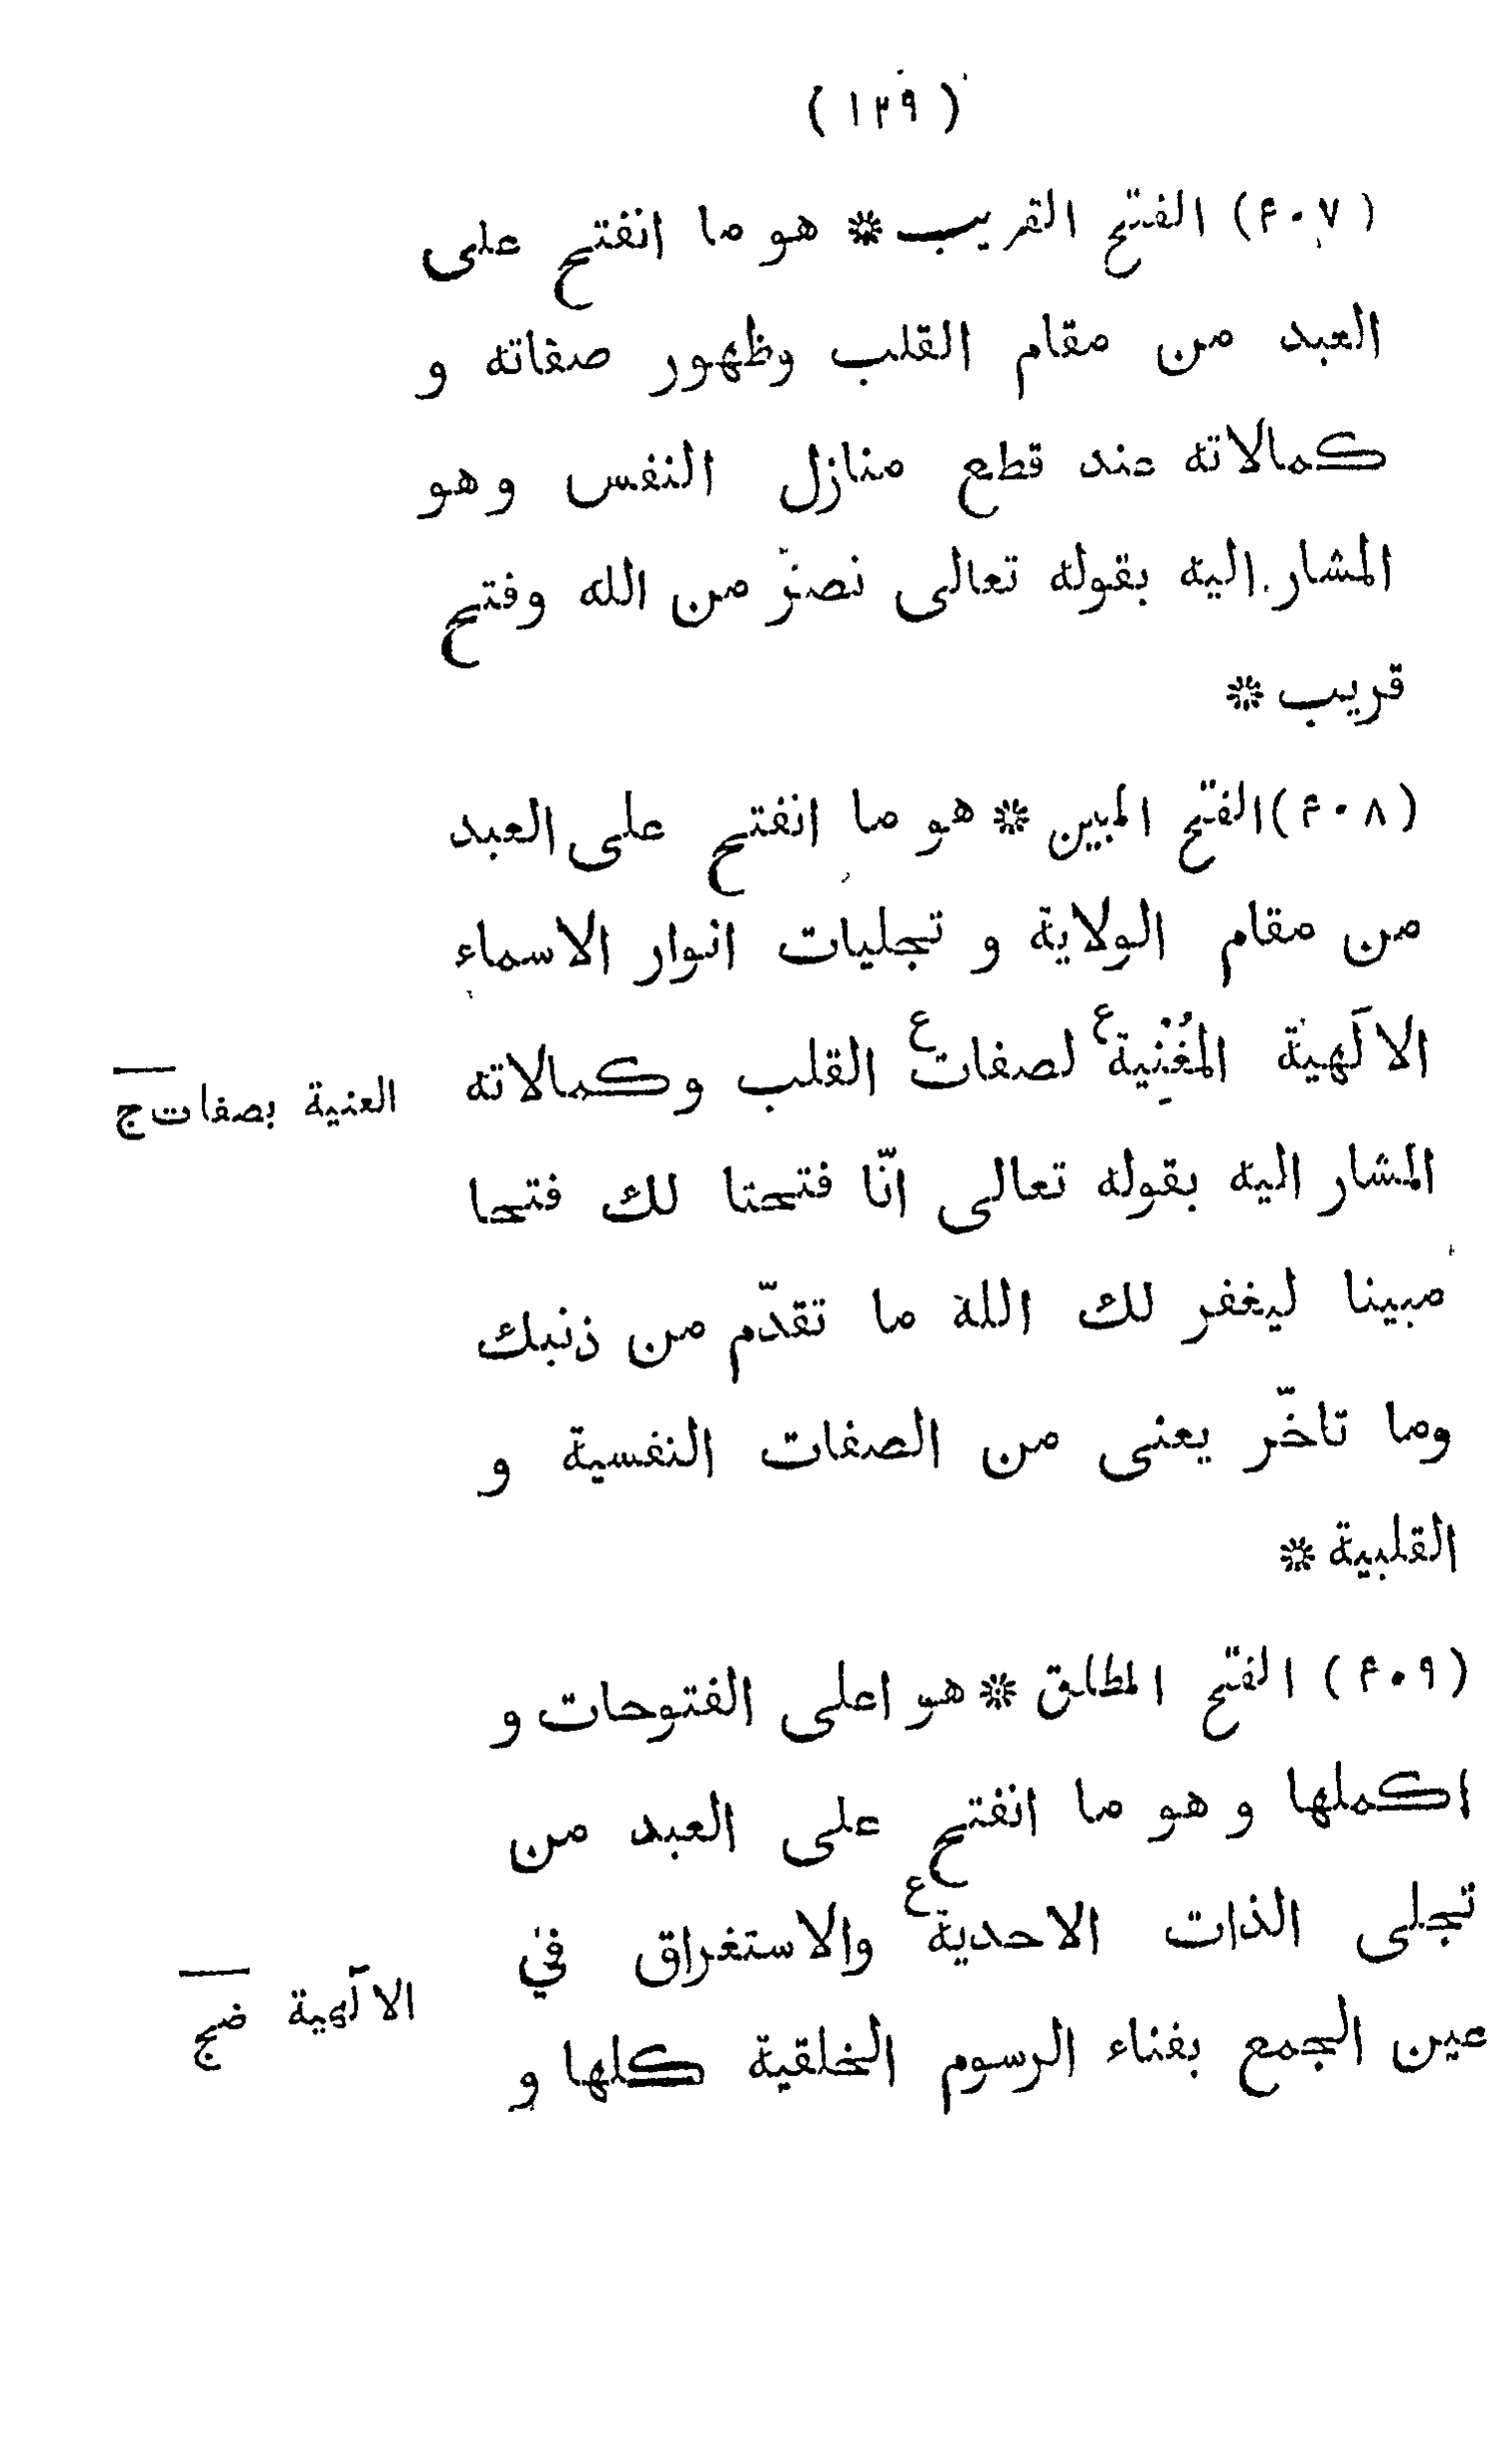 (١٢٩)
(٤٠٧) الفتح القريب * هو ما انفتح على
العبد من مقام القلب وظهور صفاته و
كمالاته عند قطع منازل النفس وهو
المشار اليه بقوله تعالى نصرٌ من الله وفتح
قريب *
(٤٠٨) الفتح المبين * هو ما انفتح على العبد
من مقام الولاية و تجليات انوار الاسماء
الالٓهية المُغْنِية ع لصفات ع القلب وكمالاته
العنية بصفات ج
المشار اليه بقوله تعالى انّا فتحنا لك فتحا
مبينا ليغفر لك الله ما تقدّم من ذنبك
وما تاخّر يعنى من الصفات النفسية و
القلبية *
(٤٠٩) الفتح المطلق * هو اعلى الفتوحات و
اكملها و هو ما انفتح على العبد من
تجلى الذات الاحدية ع والاستغراق في
الالٓهية ضج
عين الجمع بفناء الرسوم الخلقية كلها و